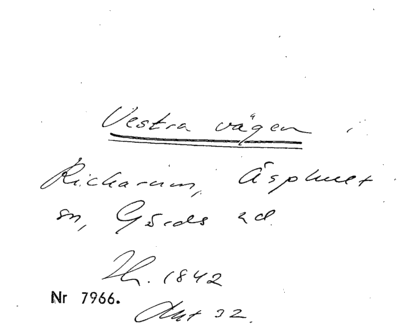 Vestra vägen
Richarum, Äsphult
sn, Gärds hd.
1842
Nr 7966.
Akt 32.